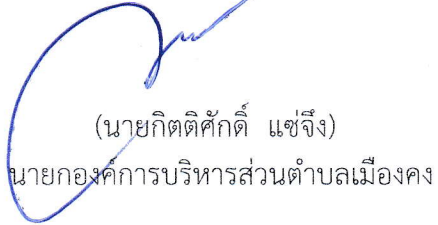 (นายกิตติศักดิ์ แซ่จึง)
นายกองค์การบริหารส่วนตำบลเมืองคง